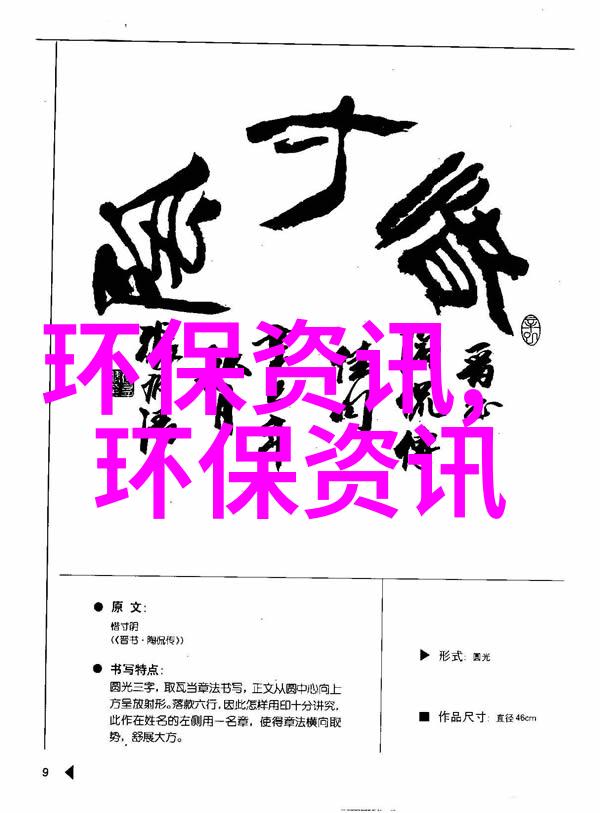 惜寸陰
环保资讯,
环保资讯
● 原文:
惜寸阴
《晋书·陶侃传》
● 书写特点:
圆光三字,取瓦当章法书写,正文从圆中心向上
方呈放射形。落款六行,因此怎样用印十分讲究,
此作在姓名的左侧用一名章,使得章法横向取
势,舒展大方。
▶ 形式:圆光
■ 作品尺寸:直径46cm
9 ◀